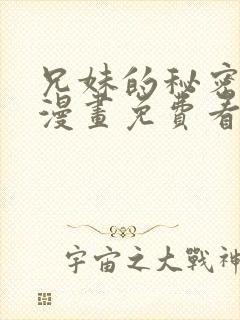 兄妹的秘密
漫畫免費看
宇宙之大戰神